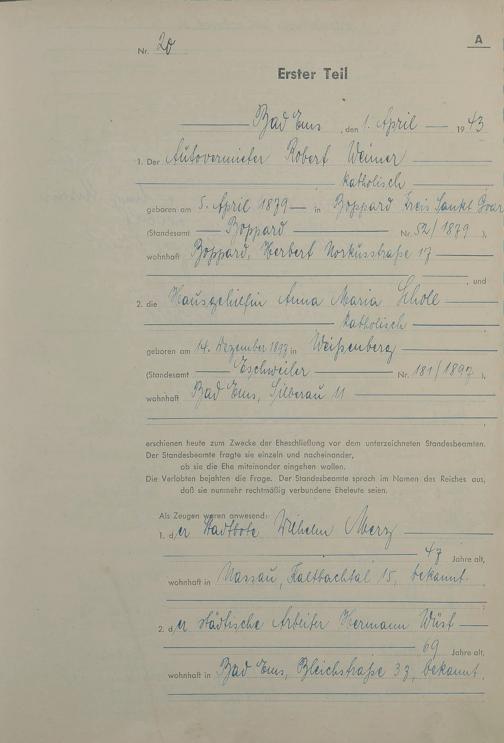 Nr. 20
A
Erster Teil
Bad Ems, den 1. April 1943
1. Der Autovermieter Robert Weimer
katholisch
geboren am 5. April 1879 in Boppard Kreis Sankt Goar
(Standesamt Boppard Nr. 52/1879),
wohnhaft Boppard, Herbert Norkusstraße 17
und
2. die Hausgehilfin Anna Maria Scholl
katholisch
geboren am 14. Dezember 1897 in Weißenberg
(Standesamt Eschweiler Nr. 181/1897),
wohnhaft Bad Ems, Silberau 11
erschienen heute zum Zwecke der Eheschließung vor dem unterzeichneten Standesbeamten.
Der Standesbeamte fragte sie einzeln und nacheinander,
ob sie die Ehe miteinander eingehen wollen.
Die Verlobten bejahten die Frage. Der Standesbeamte sprach im Namen des Reiches aus,
daß sie nunmehr rechtmäßig verbundene Eheleute seien.
Als Zeugen waren anwesend:
1. der Stadtbote Wilhelm Merz
47 Jahre alt,
wohnhaft in Nassau, Kaltbachtal 15, bekannt.
2. der städtische Arbeiter Hermann Wüst
69 Jahre alt,
wohnhaft in Bad Ems, Bleichstraße 33, bekannt.